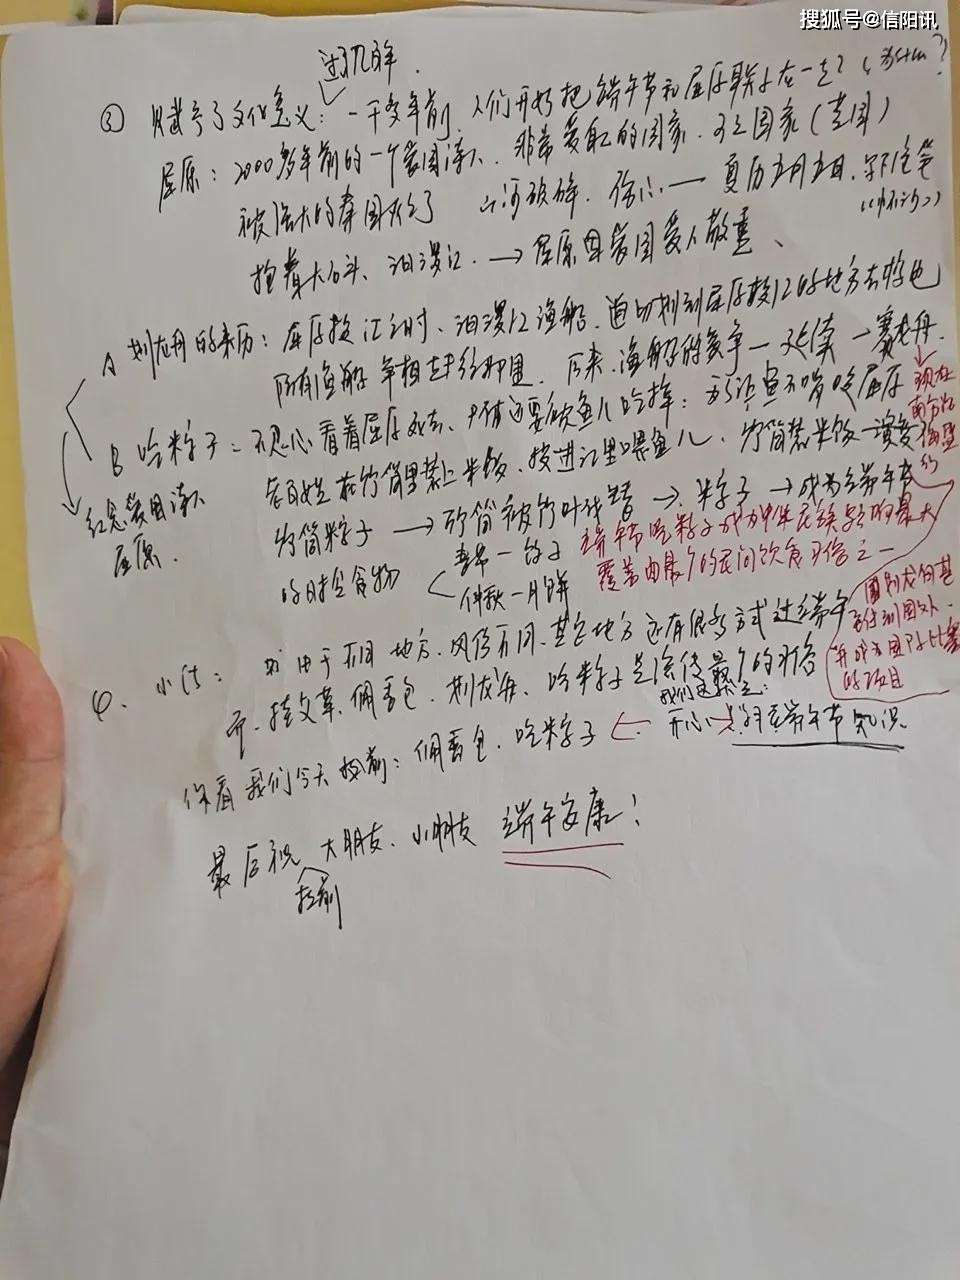 搜狐号@信阳讯
过了几百年.
③ 赋予了文化意义：一千多年前，人们开始把端午节和屈原联系在一起？(为什么？
屈原：2000多年前的一个爱国诗人. 非常爱自己的国家. 自己国家(楚国)
被强大的秦国灭了 山河破碎. 伤心 — 夏历五月五日. 写下绝笔
抱着大石头、汨罗江. → 屈原因爱国受人敬重、
A 划龙舟的来历：屈原投江之时、汨罗江渔船. 迅切划到屈原投江的地方去捞他
所有渔船 争相 后来、渔船的竞争 — 延续 — 赛龙舟.
B 吃粽子：不忍心看着屈原死去、尸体还要被鱼儿吃掉：为了让鱼不啃咬屈原
老百姓在竹筒里装上米饭、投进江里喂鱼儿、竹筒装米饭—演变
竹筒粽子 → 竹筒被竹叶代替 → 粽子 → 成为端午节
的时令食物
春节—饺子
中秋—月饼
纪念爱国诗人
屈原.
端午节吃粽子成为中华民族影响最大
覆盖面最广的民间饮食习俗之一
现在
南方沿
国划龙舟甚
至传到国外.
并成为国际比赛
的项目
④. 小结： 由于不同地方. 风俗不同. 其它地方还有很多方式过端午
节. 挂艾草. 佩香包. 划龙舟、吃粽子是流传最广的习俗
你看我们今天提前：佩香包. 吃粽子 ← 开心 学习端午节知识.
最后祝 大朋友、小朋友 端午安康！
提前